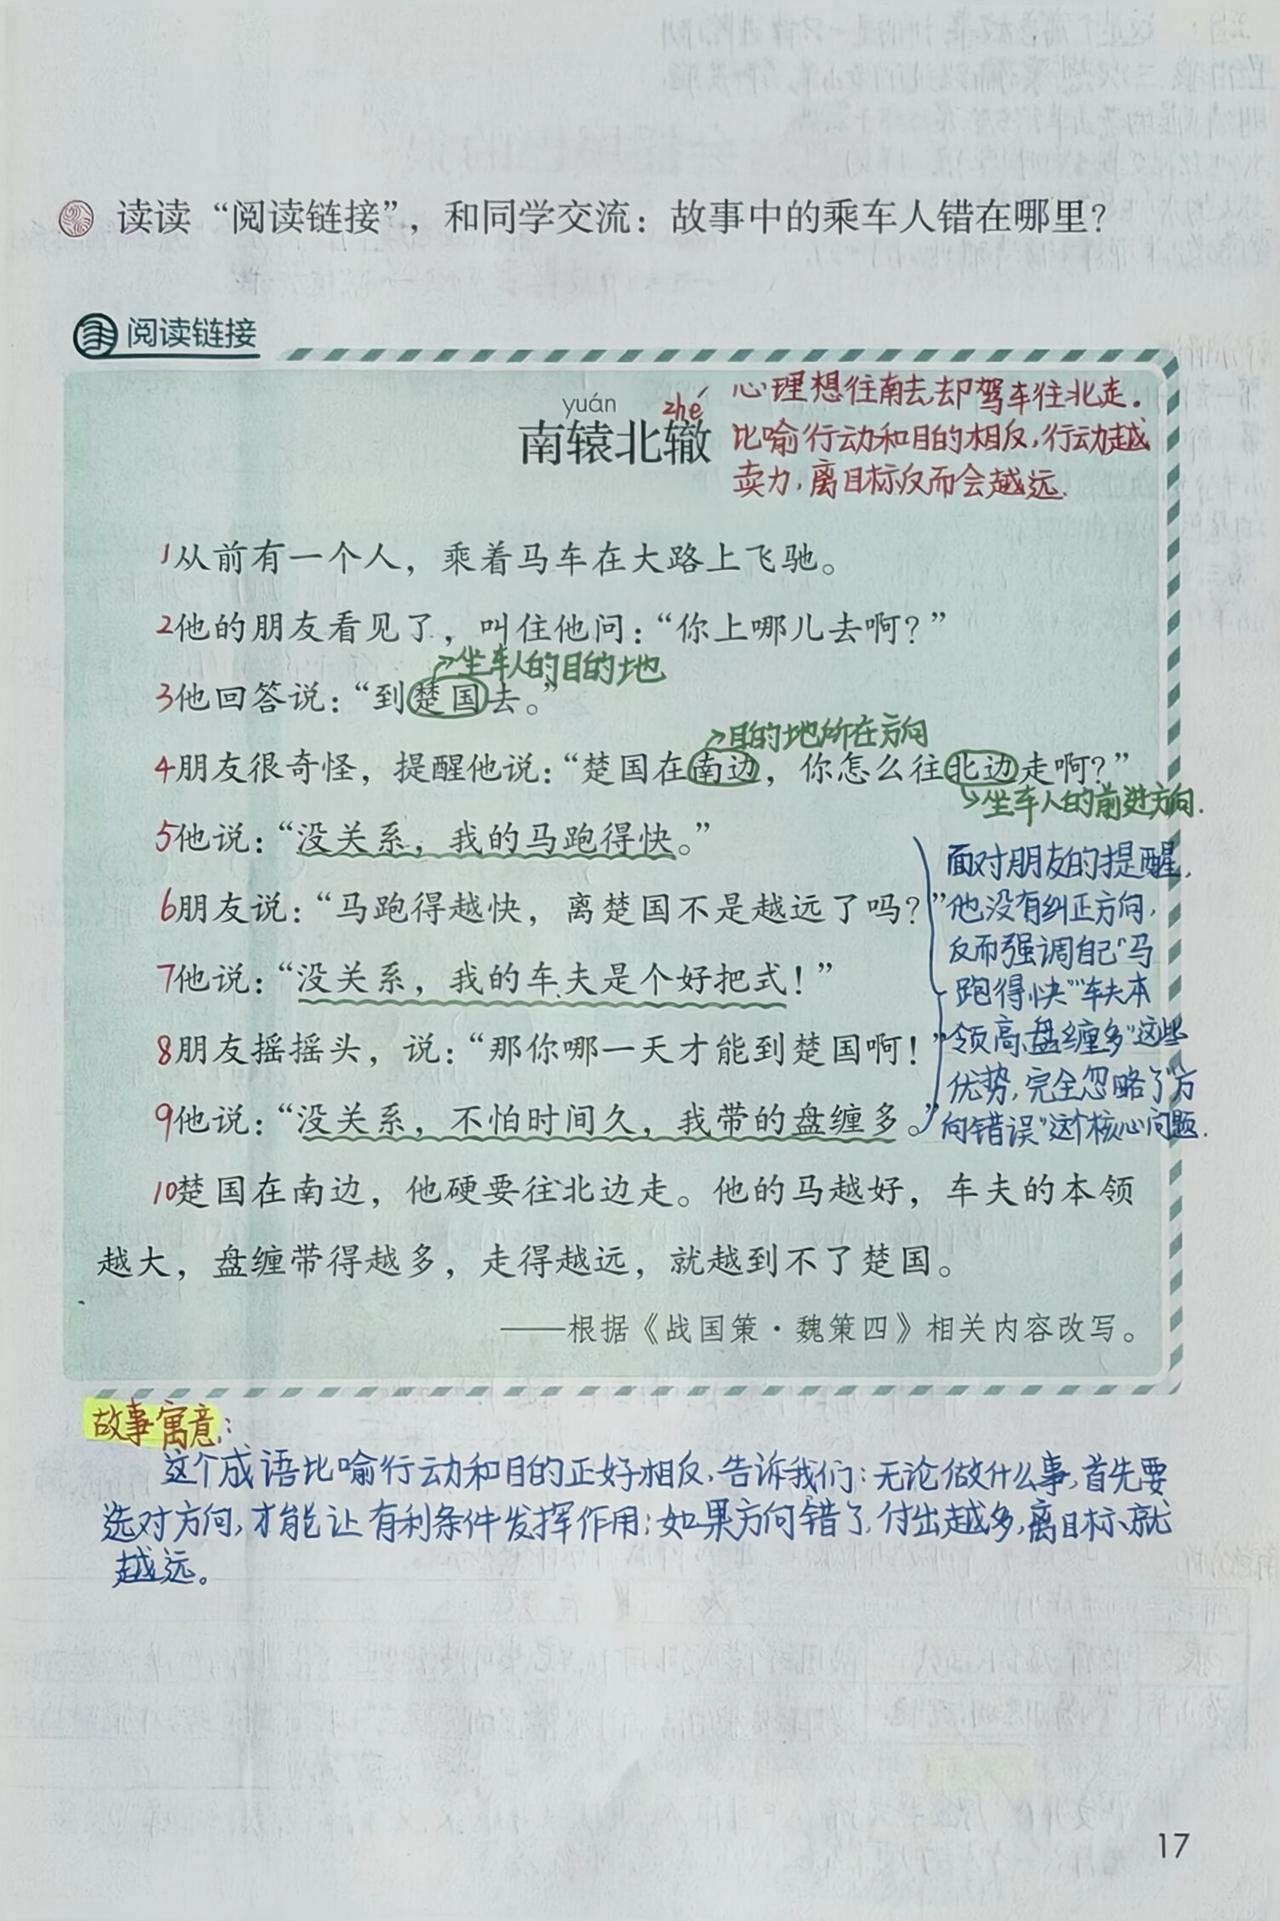 读读“阅读链接”，和同学交流：故事中的乘车人错在哪里？
阅读链接
yuán
zhé
南辕北辙
心理想往南去，却驾车往北走。
比喻行动和目的相反，行动越
卖力，离目标反而会越远.
1从前有一个人，乘着马车在大路上飞驰。
2他的朋友看见了，叫住他问：“你上哪儿去啊？”
坐车人的目的地
3他回答说：“到楚国去。”
目的地所在方向
4朋友很奇怪，提醒他说：“楚国在南边，你怎么往北边走啊？”
坐车人的前进方向.
5他说：“没关系，我的马跑得快。”
6朋友说：“马跑得越快，离楚国不是越远了吗？”
7他说：“没关系，我的车夫是个好把式！”
8朋友摇摇头，说：“那你哪一天才能到楚国啊！”
9他说：“没关系，不怕时间久，我带的盘缠多。”
面对朋友的提醒，
他没有纠正方向，
反而强调自己“马
跑得快”“车夫本
领高、盘缠多”这些
优势，完全忽略了“方
向错误”这个核心问题.
10楚国在南边，他硬要往北边走。他的马越好，车夫的本领
越大，盘缠带得越多，走得越远，就越到不了楚国。
——根据《战国策·魏策四》相关内容改写。
故事寓意：
这个成语比喻行动和目的正好相反，告诉我们：无论做什么事，首先要
选对方向，才能让有利条件发挥作用；如果方向错了，付出越多，离目标就
越远。
17